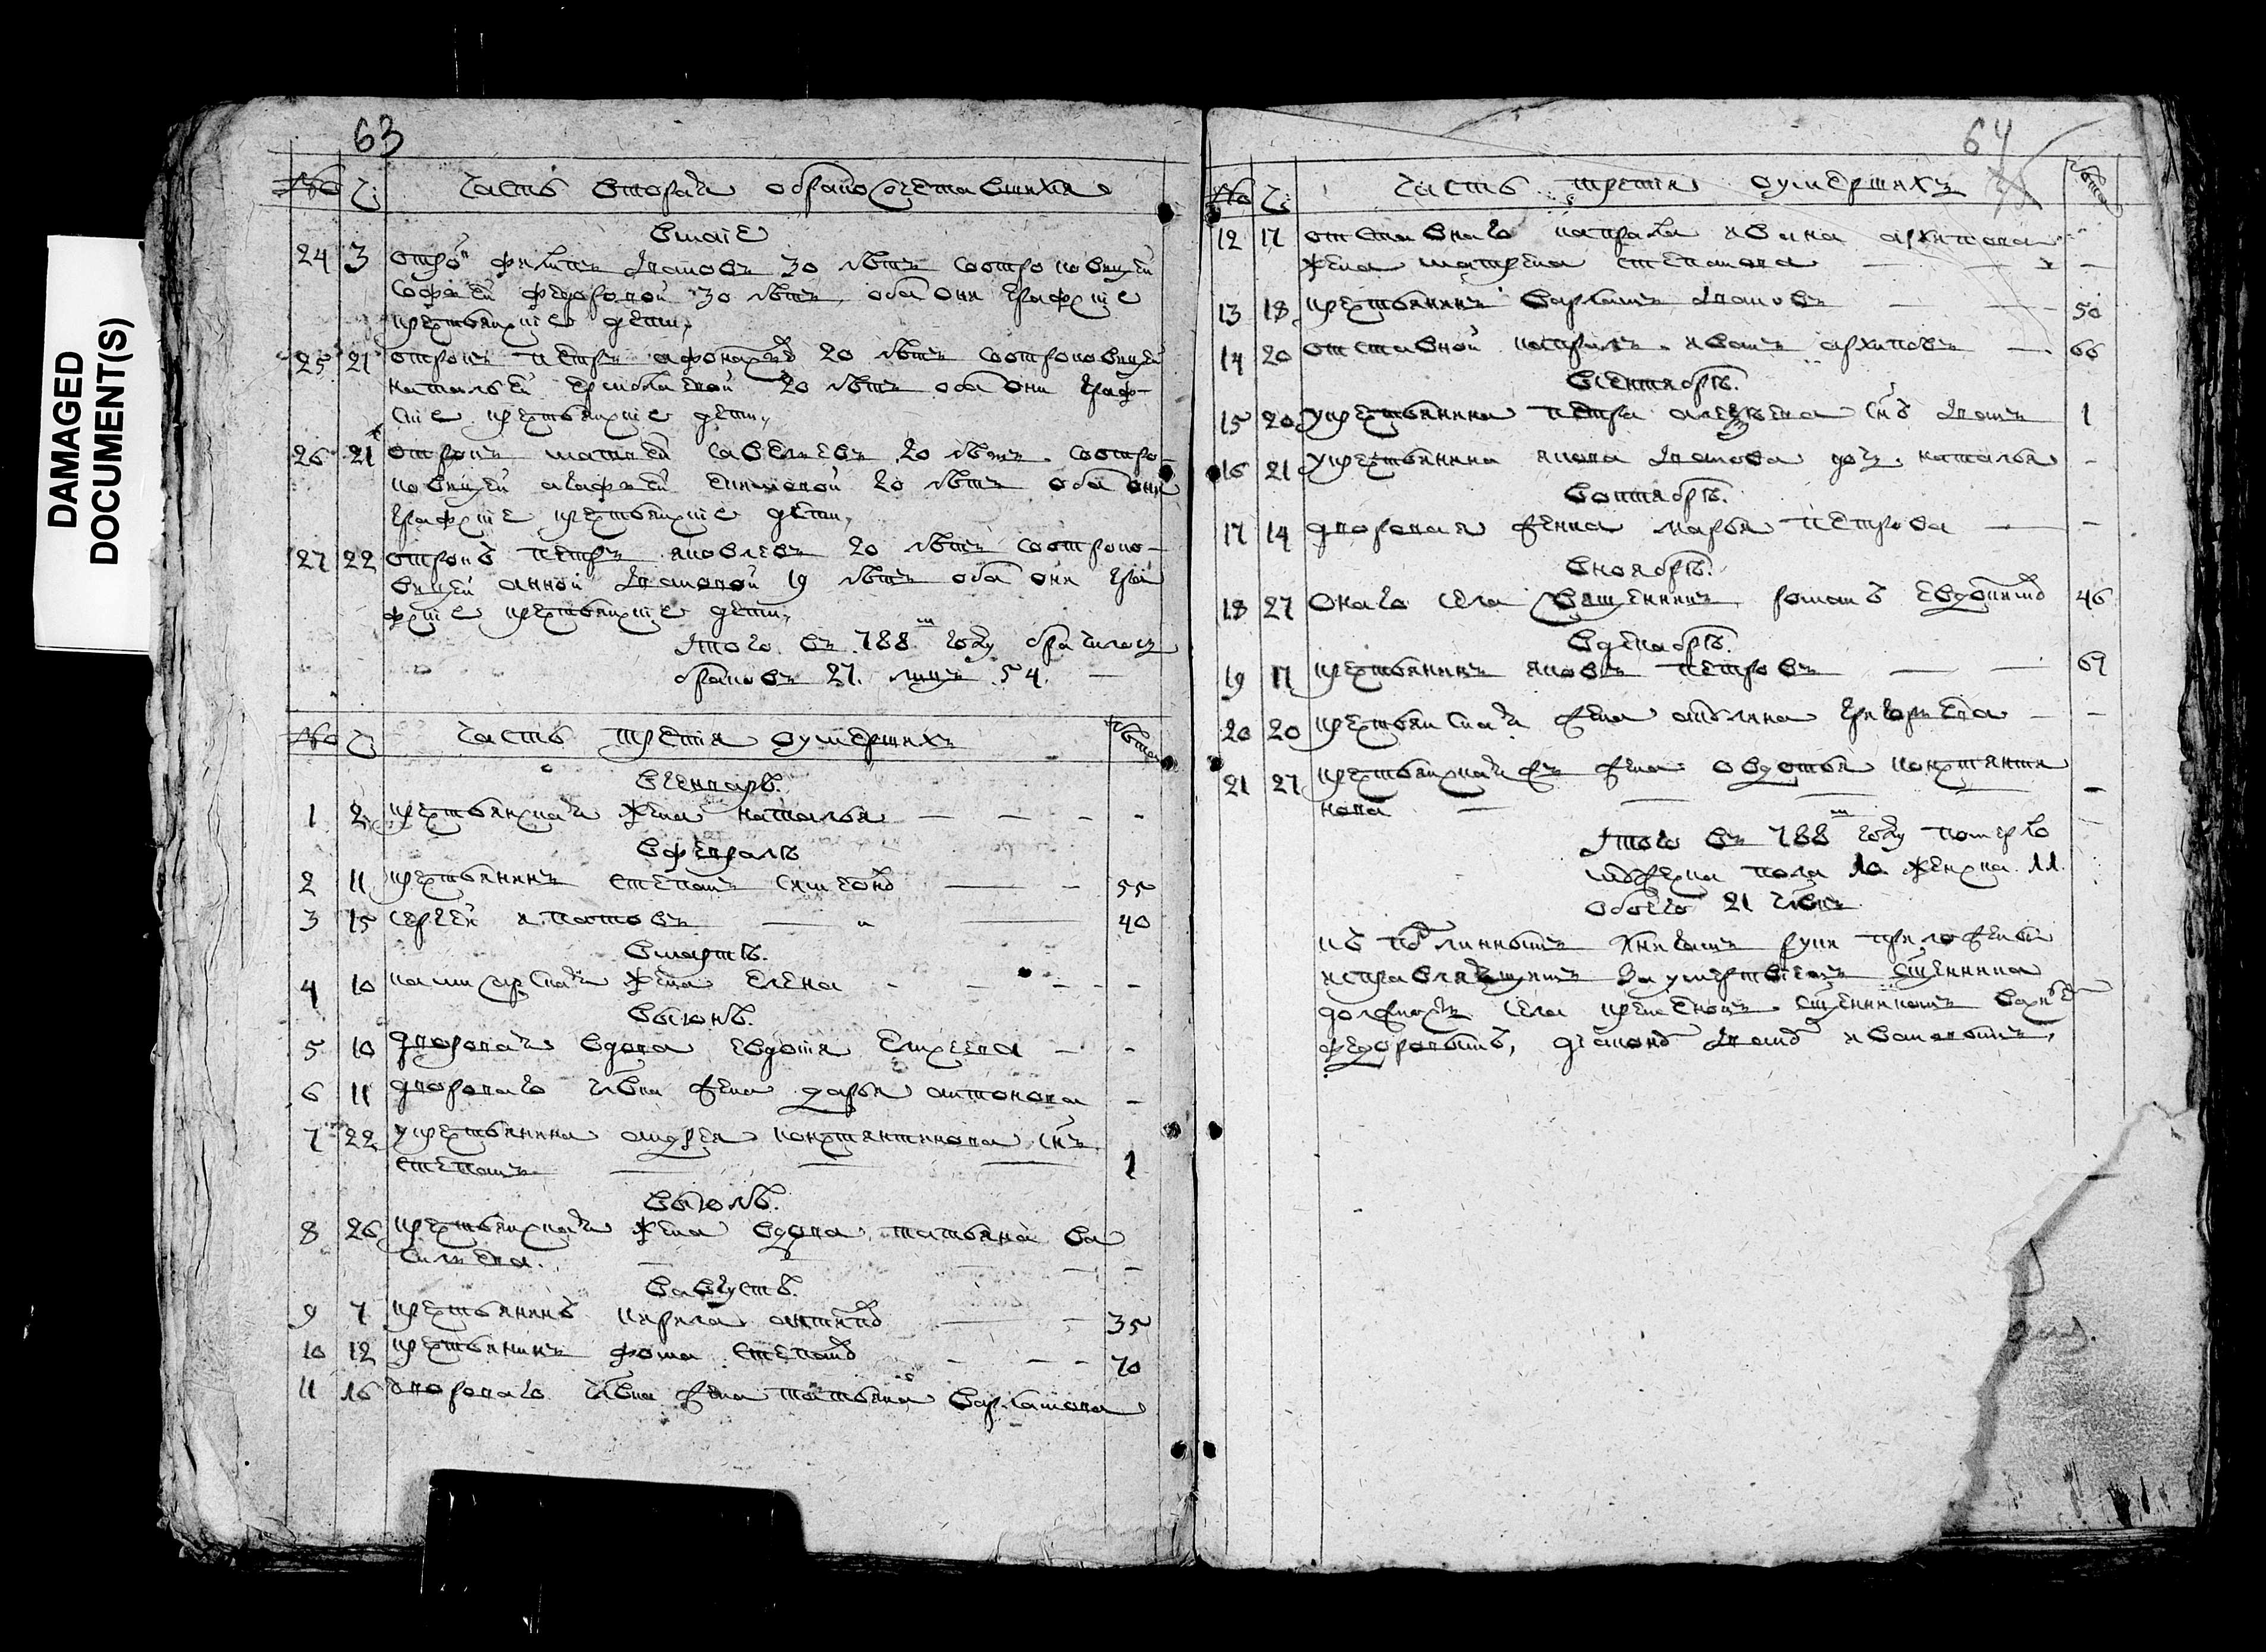 DAMAGED
DOCUMENT(S)
63
№ Ч: Часть вторая о бракосочетавшихся
Вмаiе
24 3 отрокъ филипъ ивановъ 30 летъ сотроковицей
софьей федоровой 30 летъ оба они графские
крестьянские дети,
25 21 отрокъ петръ 20 летъ сотроковицей
натальей 20 летъ оба они граф-
ские крестьянские дети,
26 21 отрокъ матвей савельевъ 20 летъ сотро-
ковицей агафьей 20 летъ оба они
графские крестьянские дети,
27 22 отрокъ петръ яковлевъ 20 летъ сотроко-
вицей анной ивановой 19 летъ оба они гра
фские крестьянские дети,
итого въ 788м году бра
браковъ 27. лицъ 54.
№ Ч: Часть третия оумершихъ лета
Вгенварь.
1 2 крестьянская жена наталья - -
Вфевраль
2 11 крестьянинъ степанъ симеоновъ - 55
3 15 сергей потаповъ - 40
Вмартъ.
4 10 жена елена - -
Виюнь.
5 10 дворовая вдова евдотия - -
6 11 дворового чвка жена дарья антонова -
7 22 у крестьянина андрея константинова снъ
степанъ - 1
Виюль.
8 26 крестьянская жена вдова татьяна ва
сильева. - -
Вавгустъ.
9 7 крестьянинъ кирила - 35
10 12 крестьянинъ фома степановъ - 70
11 16 дворового чвка жена татьяна варламова
64
№ Ч: Часть третия оумершихъ лета
12 17 отставного капрала ивана архипова
жена матрена степанова - -
13 18 крестьянинъ варламъ ивановъ - 50
14 20 отставной капралъ иванъ архиповъ - 66
Всентябрь.
15 20 у крестьянина петра алексеева снъ иванъ 1
16 21 у крестьянина якова иванова дочь наталья -
Воктябрь.
17 14 дворовая женка марья петрова -
Вноябрь.
18 27 оного села священникъ романъ евдокимовъ 46
Вдекабрь.
19 17 крестьянинъ яковъ петровъ - 69
20 20 крестьянская жена акулина григорьева - -
21 27 крестьянская жена овдотья константи
нова - -
итого въ 788м году померло
мужеска пола 10 женска 11.
обоего 21 чвкъ
къ подлиннымъ книгамъ руки приложены
исправляющимъ за умертвиемъ священника
должность села священникомъ
федоровымъ, дьякономъ иваномъ ивановымъ,